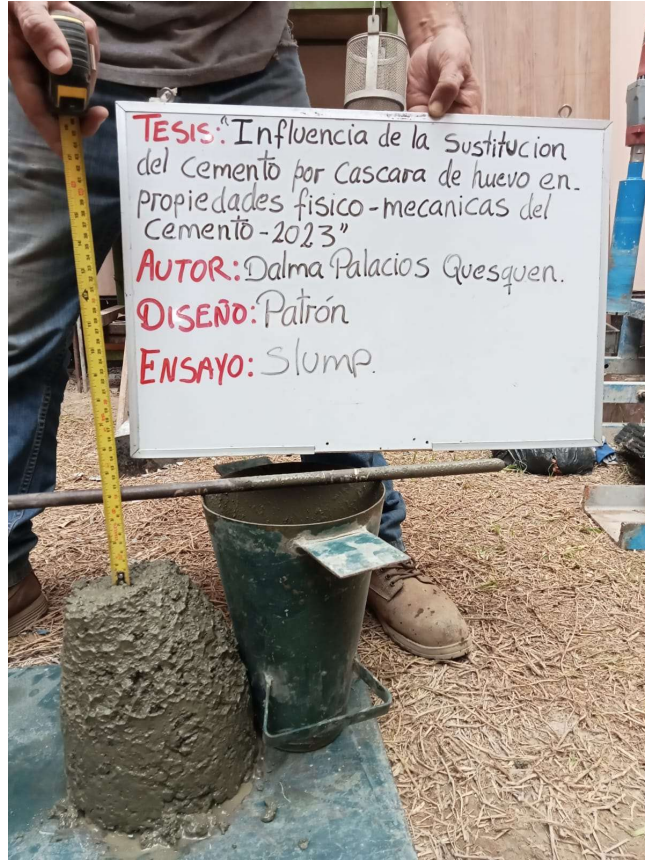 TESIS: "Influencia de la Sustitucion
del cemento por cascara de huevo en
propiedades fisico-mecanicas del
Cemento-2023"
AUTOR: Dalma Palacios Quesquen.
DISEÑO: Patrón
ENSAYO: Slump.